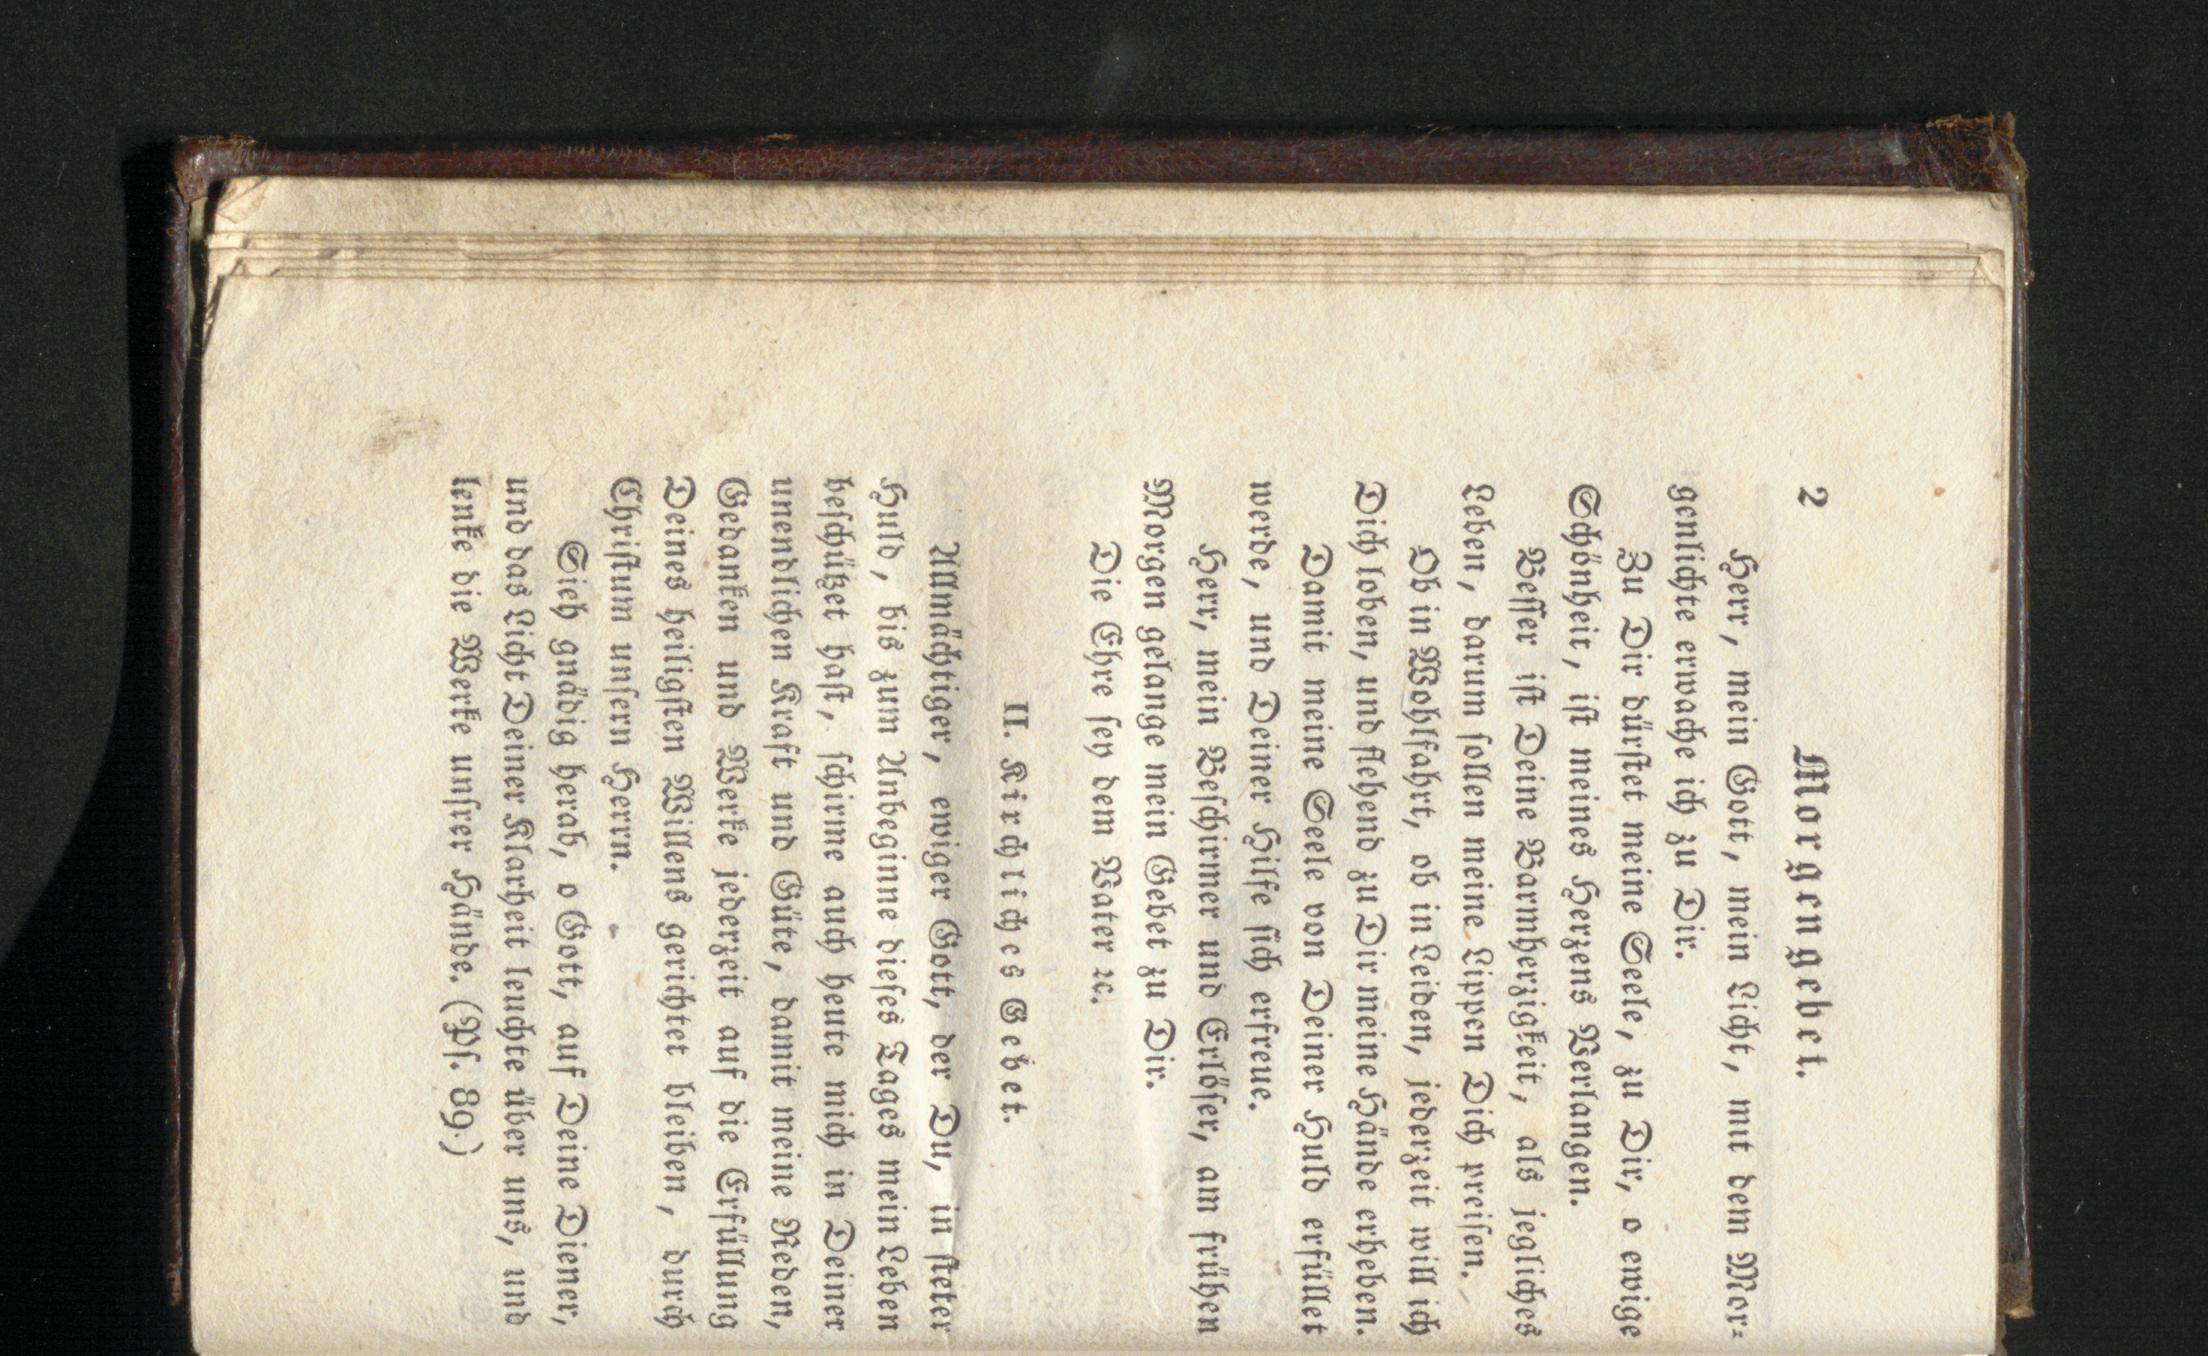 2 Morgengebet.
Herr, mein Gott, mein Licht, mit dem Mor-
genlichte erwache ich zu Dir.
Zu Dir dürſtet meine Seele, zu Dir, o ewige
Schönheit, iſt meines Herzens Verlangen.
Beſſer iſt Deine Barmherzigkeit, als jegliches
Leben, darum ſollen meine Lippen Dich preiſen.
Ob in Wohlfahrt, ob in Leiden, jederzeit will ich
Dich loben, und flehend zu Dir meine Hände erheben.
Damit meine Seele von Deiner Huld erfüllet
werde, und Deiner Hilfe ſich erfreue.
Herr, mein Beſchirmer und Erlöſer, am frühen
Morgen gelange mein Gebet zu Dir.
Die Ehre ſey dem Vater ꝛc.
II. Kirchliches Gebet.
Allmächtiger, ewiger Gott, der Du, in ſteter
Huld, bis zum Anbeginne dieſes Tages mein Leben
beſchützet haſt, ſchirme auch heute mich in Deiner
unendlichen Kraft und Güte, damit meine Reden,
Gedanken und Werke jederzeit auf die Erfüllung
Deines heiligſten Willens gerichtet bleiben, durch
Chriſtum unſern Herrn.
Sieh gnädig herab, o Gott, auf Deine Diener,
und das Licht Deiner Klarheit leuchte über uns, und
lenke die Werke unſrer Hände. (Pſ. 89.)